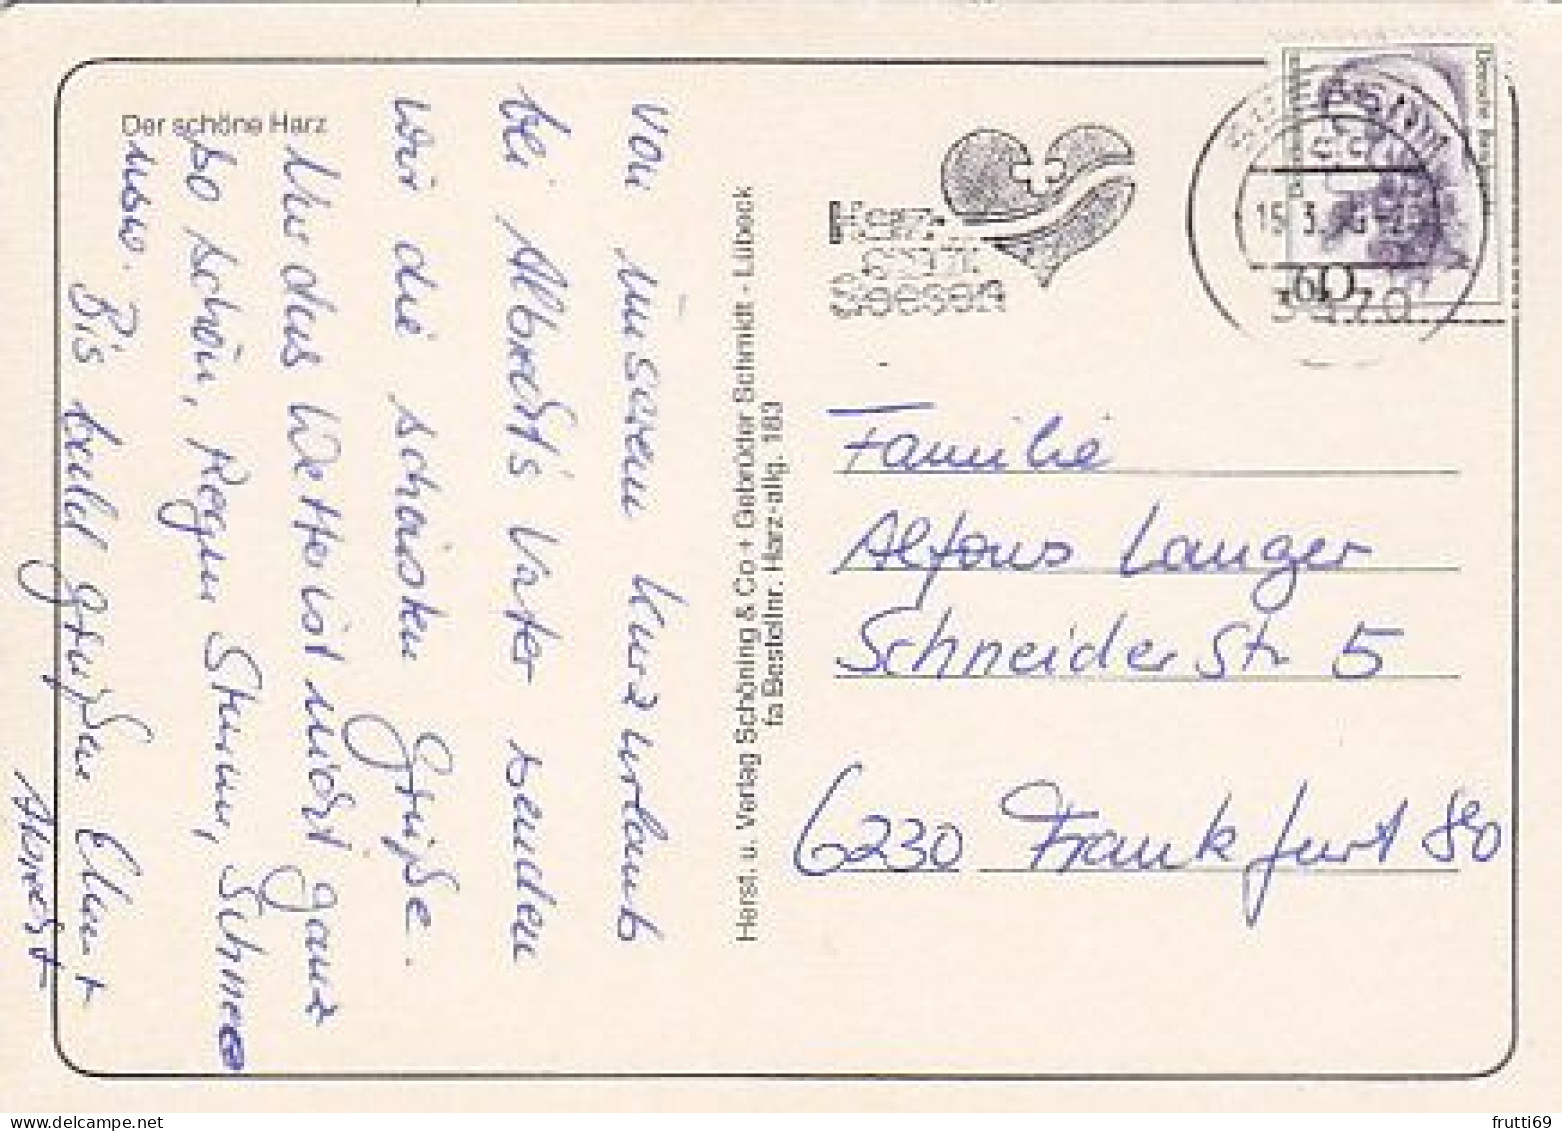 Der schöne Harz
Von unserem Kurzurlaub
bei Albrecht's Vater senden
wir die schönsten Grüße.
Nur das Wetter ist nicht ganz
so schön, Regen Sturm, Schnee
usw.
Bis bald grüßen
Albrecht
Herst. u. Verlag Schöning & Co + Gebrüder Schmidt - Lübeck
fa Bestellnr. Harz-allg. 183
Harz-
Seesen
15. 3.
60
3370
Familie
Alfons Langer
Schneider Str 5
6230 Frankfurt 80
frutti69